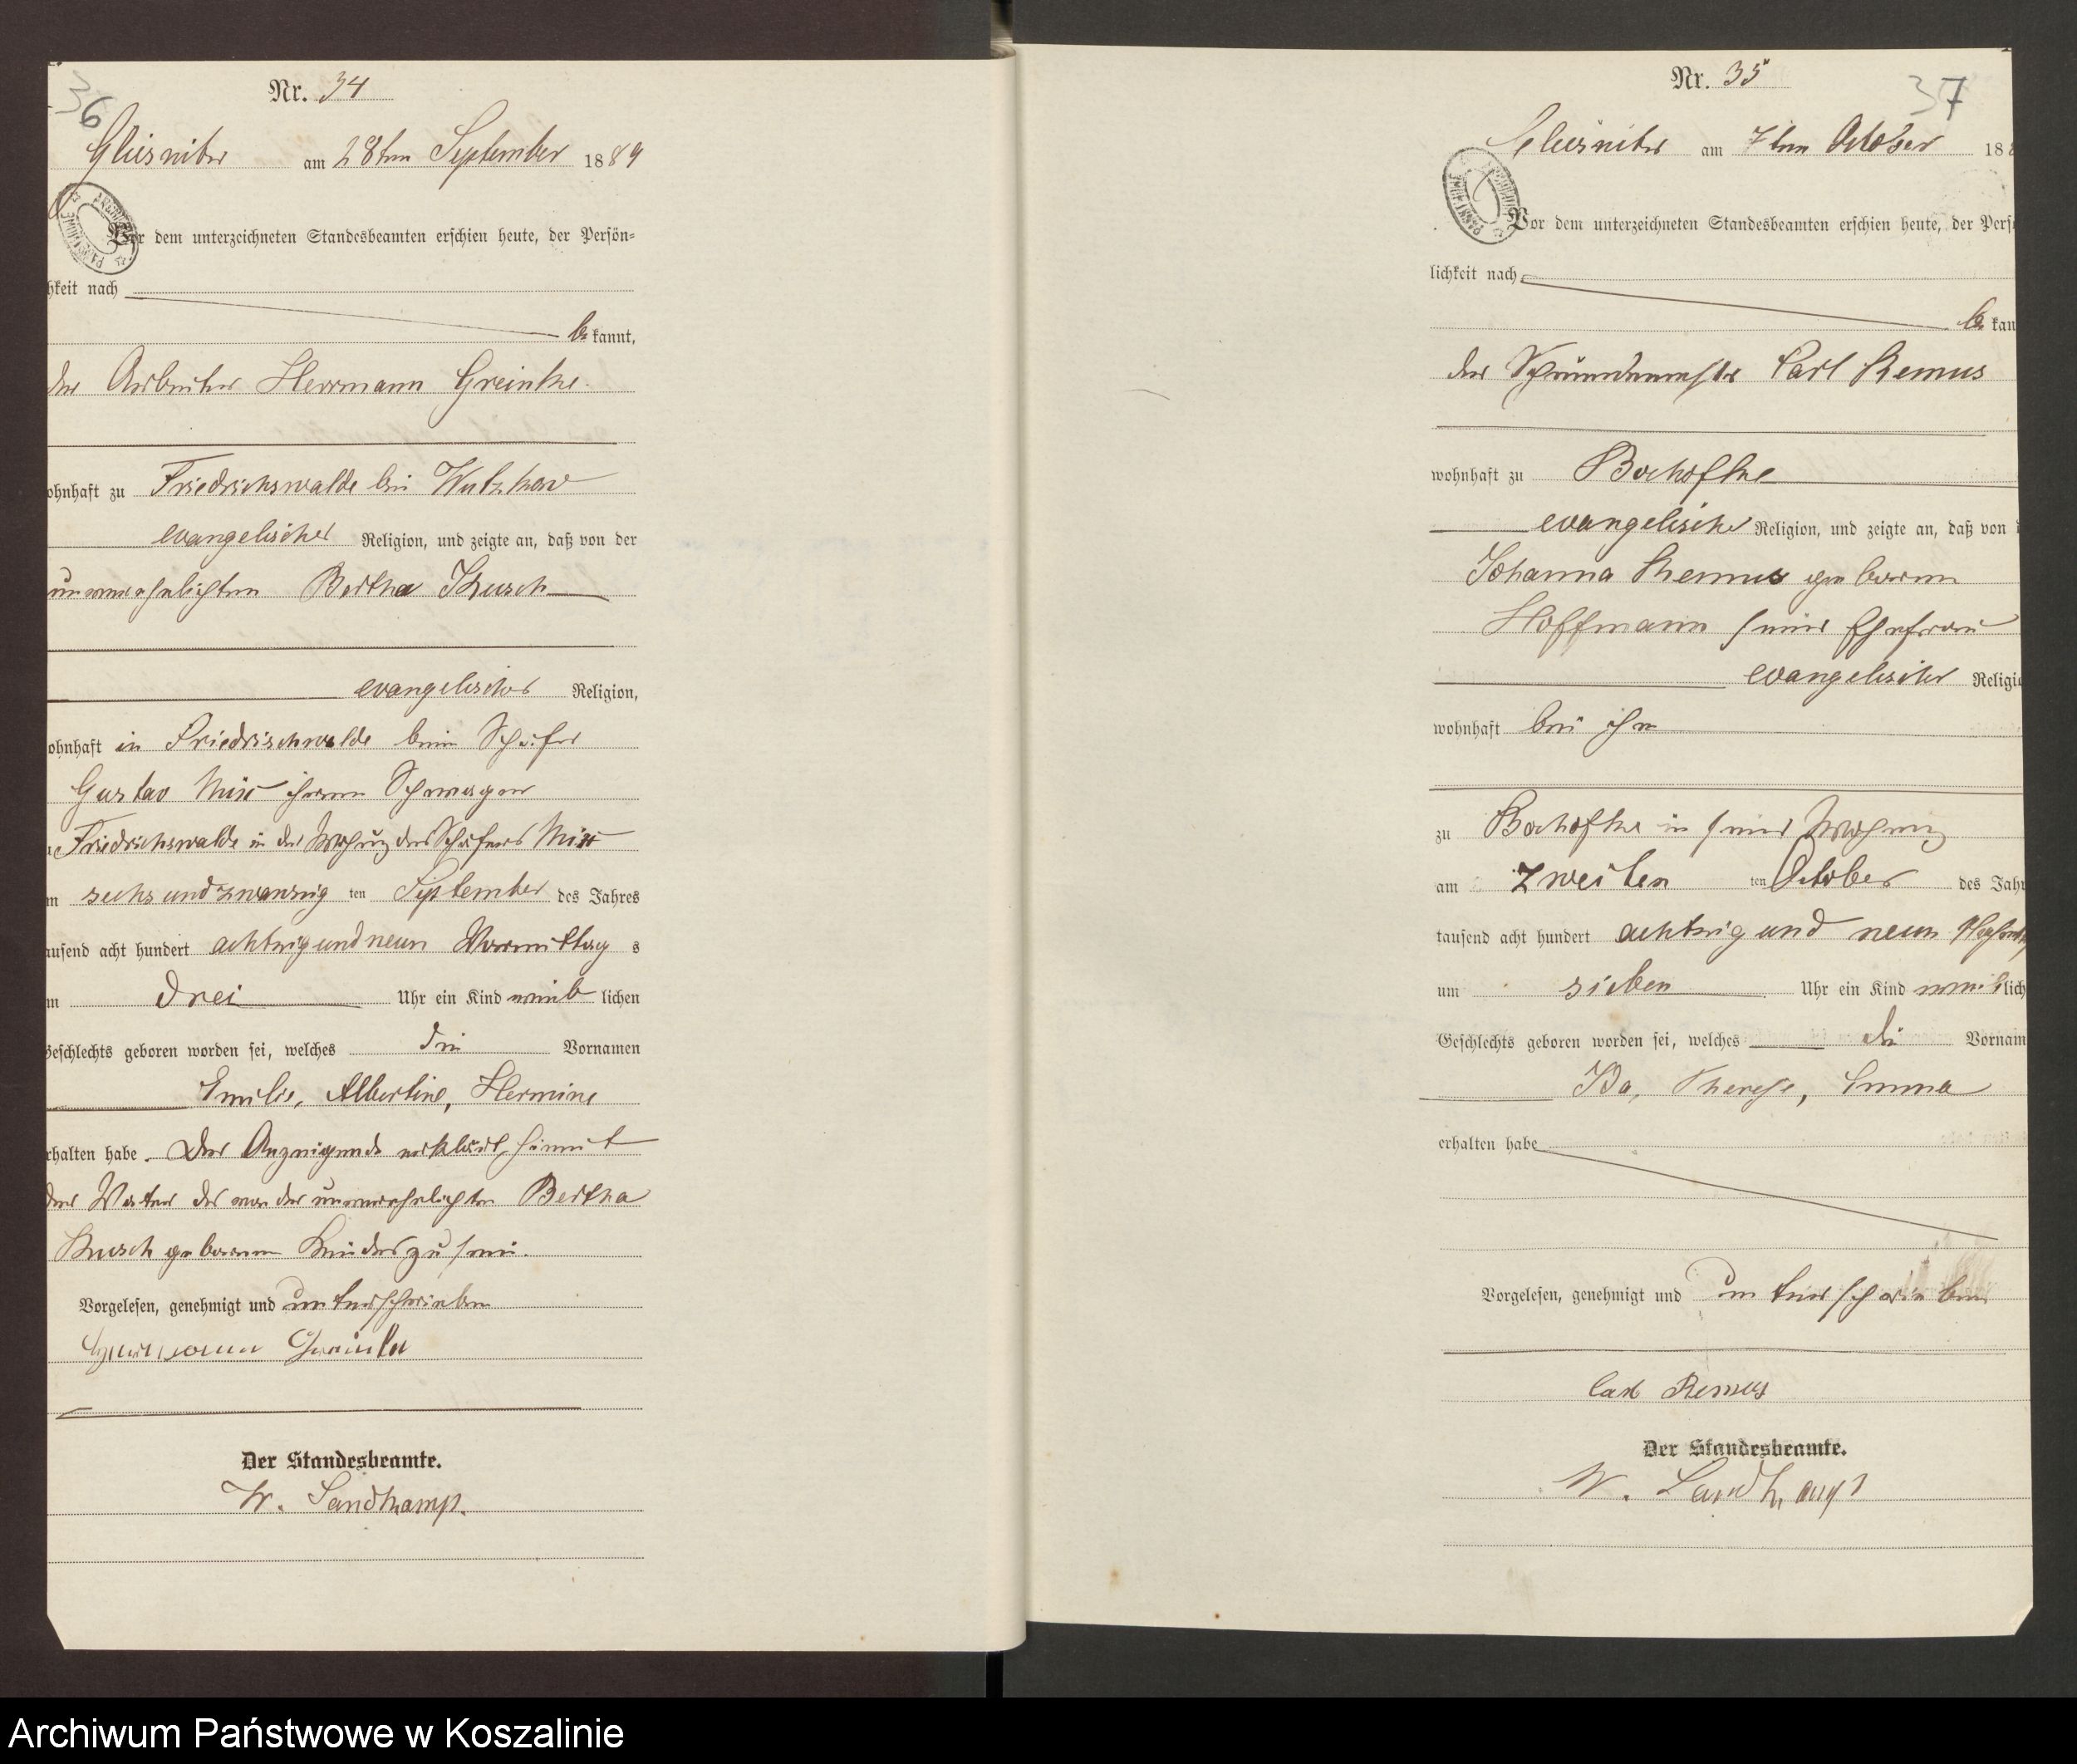 36
Nr. 34
Gliesnitz am 28ten September 1889
Vor dem unterzeichneten Standesbeamten erschien heute, der Persön-
hkeit nach
be kannt,
der Arbeiter Herrmann Greinke.
ohnhaft zu Friedrichswalde bei Wutzkow
evangelischer Religion, und zeigte an, daß von der
unverehelichten Bertha Kusch
evangelischer Religion,
ohnhaft in Friedrischwalde beim Schäfer
Gustav ihrem Schwager
Friedrichswalde in der Wohnung des Schäfers
m sechs und zwanzig ten September des Jahres
ausend acht hundert achtzig und neun Vormittag s
m drei Uhr ein Kind weib lichen
Geschlechts geboren worden sei, welches die Vornamen
Emilie, Albertine, Hermine
rhalten habe. Der Anzeigende erklärt, hiermit
der Vater des von der unverehelichten Bertha
Kusch geborenen Kindes zu sein.
Vorgelesen, genehmigt und unterschrieben
Herrmann Greinke
Der Standesbeamte.
W. Sandkamp.
37
Nr. 35
Gliesnitz am 7ten October 188
Vor dem unterzeichneten Standesbeamten erschien heute, der Persö
lichkeit nach
be kan
der Carl Remus
wohnhaft zu Bochofke
evangelischer Religion, und zeigte an, daß von d
Johanna Remus geborene
Hoffmann seiner Ehefrau
evangelischer Religio
wohnhaft bei ihm
zu Bochofke in seiner Wohnung
am zweiten ten October des Jahr
tausend acht hundert achtzig und neun
um sieben Uhr ein Kind weib lich
Geschlechts geboren worden sei, welches die Vornam
Ida, Therese, Emma
erhalten habe
Vorgelesen, genehmigt und unterschrieben
Carl Remus
Der Standesbeamte.
W. Sandkamp
Archiwum Państwowe w Koszalinie